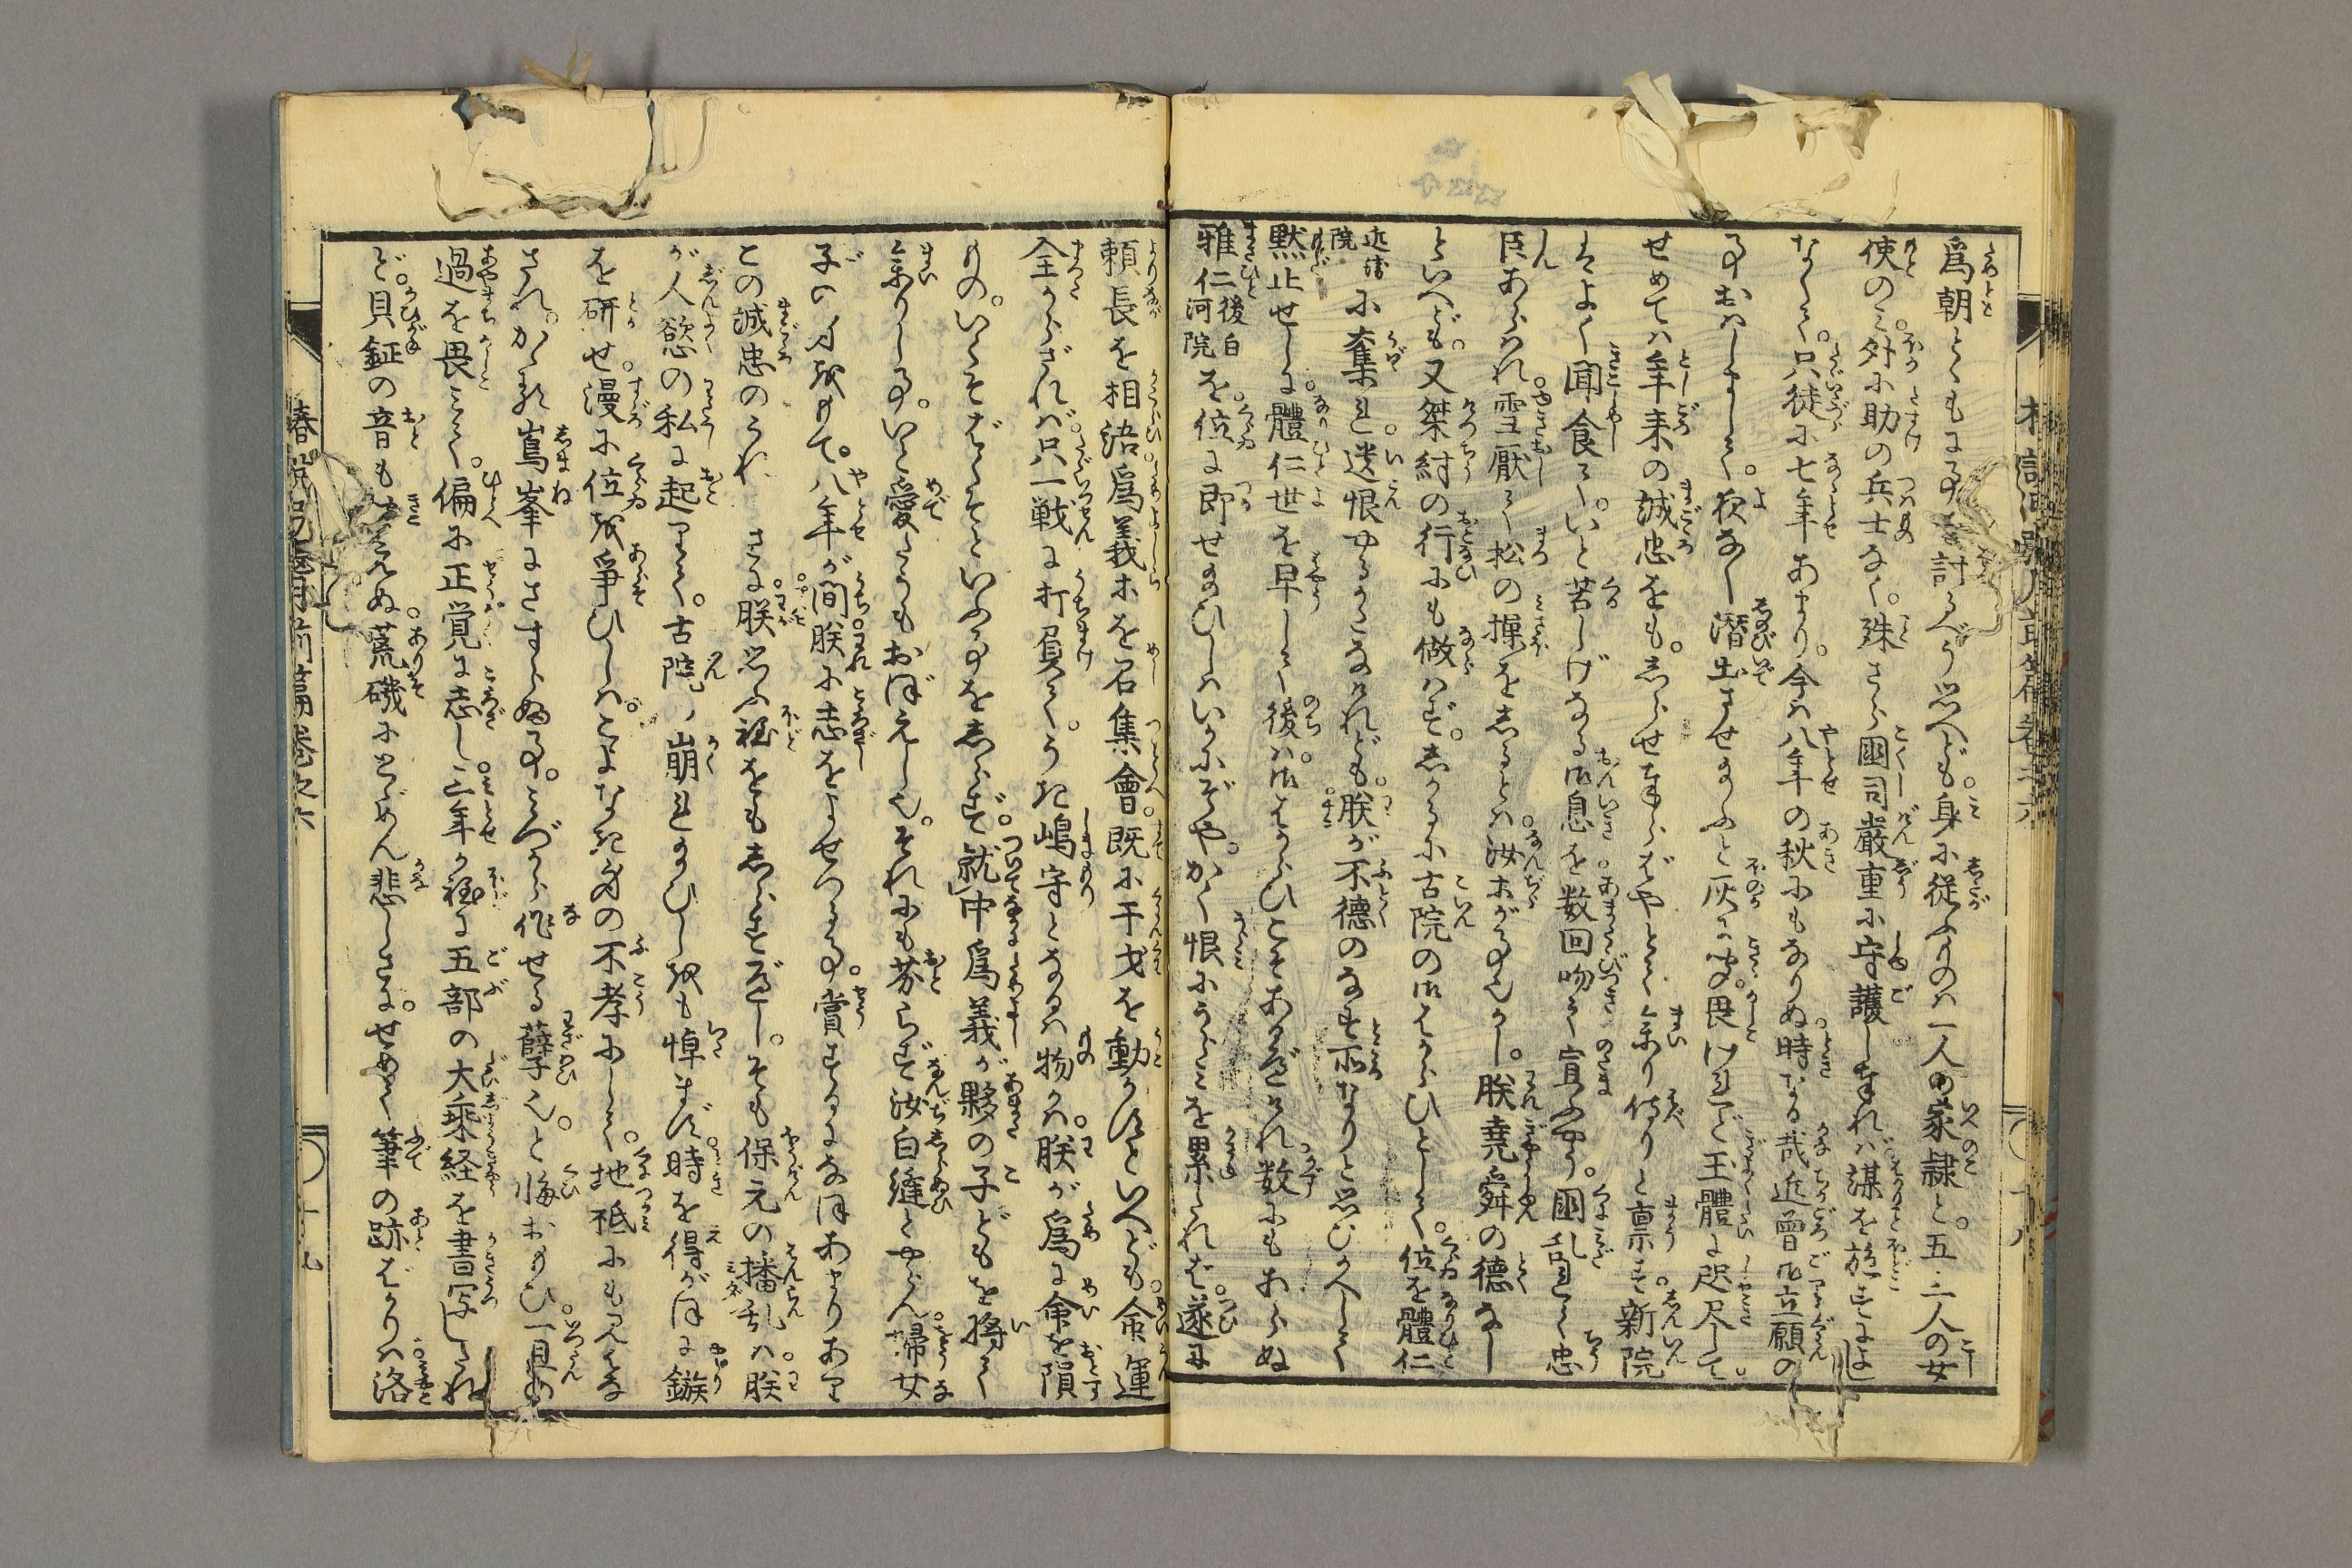 爲朝とくもに事を討るべう思へども。身に従ふものは一人の家隷と。五三人の女
使のみ。外に助の兵士なく。殊さら國司嚴重に守護し奉れば。謀を施すによし
なくて。只徒に七年あまり。今は八年の秋にもなりぬ時なる哉近曾御立願の
事おはしまして。夜なく潜出させ給ふと灰に聞。畏けれど玉體に咫尺して。
せめては年来の誠忠をも。しらせ奉らばやとて参り侍りと稟す。新院
はよく聞食て。いと苦しげなる御息を数回吻て宣ふやう。國乱れて忠
臣あらはれ。雪厭て松の操をしるとは。汝ホが事也かし。朕堯舜の徳なし
といへども。又桀紂の行にも倣はず。しかるに古院の御はからひとして。位を體仁
近衛院に奪れ。遺恨やるかたなけれども。朕が不徳のなす所なりと思ひかへして
黙止せしに。體仁世を早くして後は。御はからひこそあるべけれ数にもあらぬ
雅仁後白河院を。位に即せ給ひしはいかにぞや。かく恨にうらみを累ぬれば。遂に
頼長を相語。爲義ホを召集會。既に干戈を動かすといへども。命運
全からざれば。只一戦に打負て。うき嶋守となるは物かは。朕が爲に命を隕
もの。いくそばくぞといふ事をしらず。就中爲義が夥の子どもを将て
参りし事。いと愛たうもおぼえし也。それにも劣らず汝白縫とやらん。婦女
子の身をもて。八年が間朕に志をよせつる事。賞するになほあまりあり
この誠忠のうれしさに。朕思ふ程をもしらすべし。そも保元の播乱は。朕
が人慾の私に起りて。古院崩れ給ひしをも悼まず。時を得がほに鏃
を研せ。漫に位を爭ひしは。こよなき身の不孝にして。地祇にも見はな
され。かゝる嶌峯にさすらぬる事。みづから作せる孽也。と悔おもひ。一旦の
過を畏みて。偏に正覚に志し。三年が程に五部の大乗経を書写したれ
ど。貝鉦の音も聞えぬ。荒磯にとゞめん悲しさに。せめて筆の跡ばかりは。洛
椿説弓張月前篇巻之六